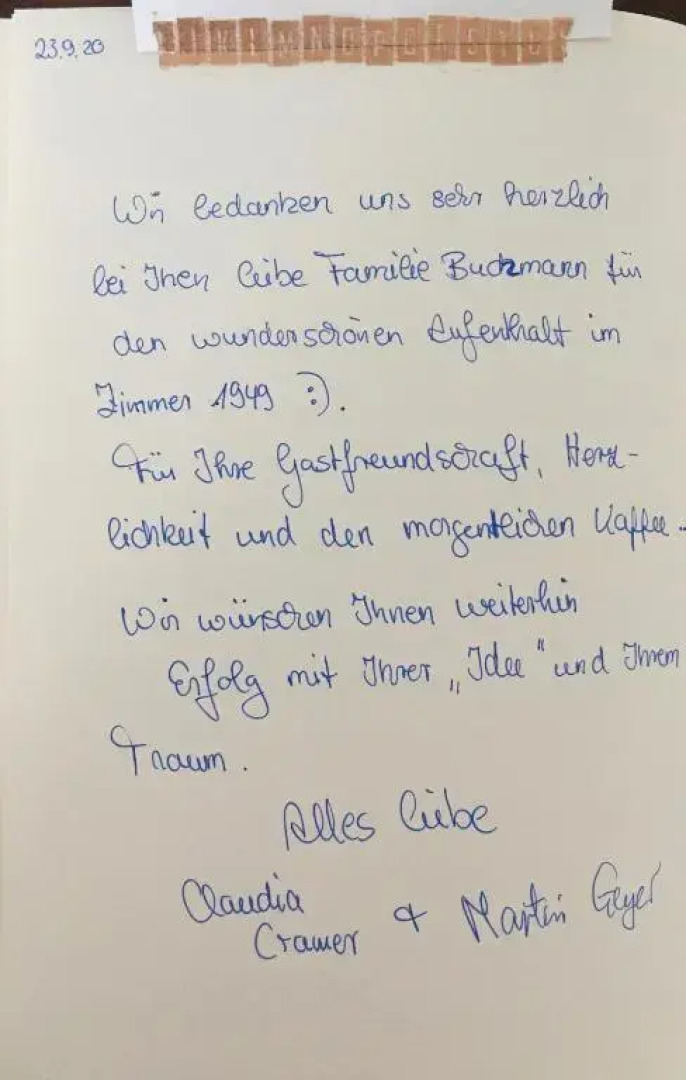 23.9.20
Wir bedanken uns sehr herzlich
bei Ihen liebe Familie Buchmann für
den wunderschönen Aufenthalt im
Zimmer 1949 :).
Für Ihre Gastfreundschaft, Herz-
lichkeit und den morgentlichen Kaffee.
Wir wünschen Ihnen weiterhin
Erfolg mit Ihrer „Idee" und Ihrem
Traum.
Alles liebe
Claudia
Cramer & Martin Geyer